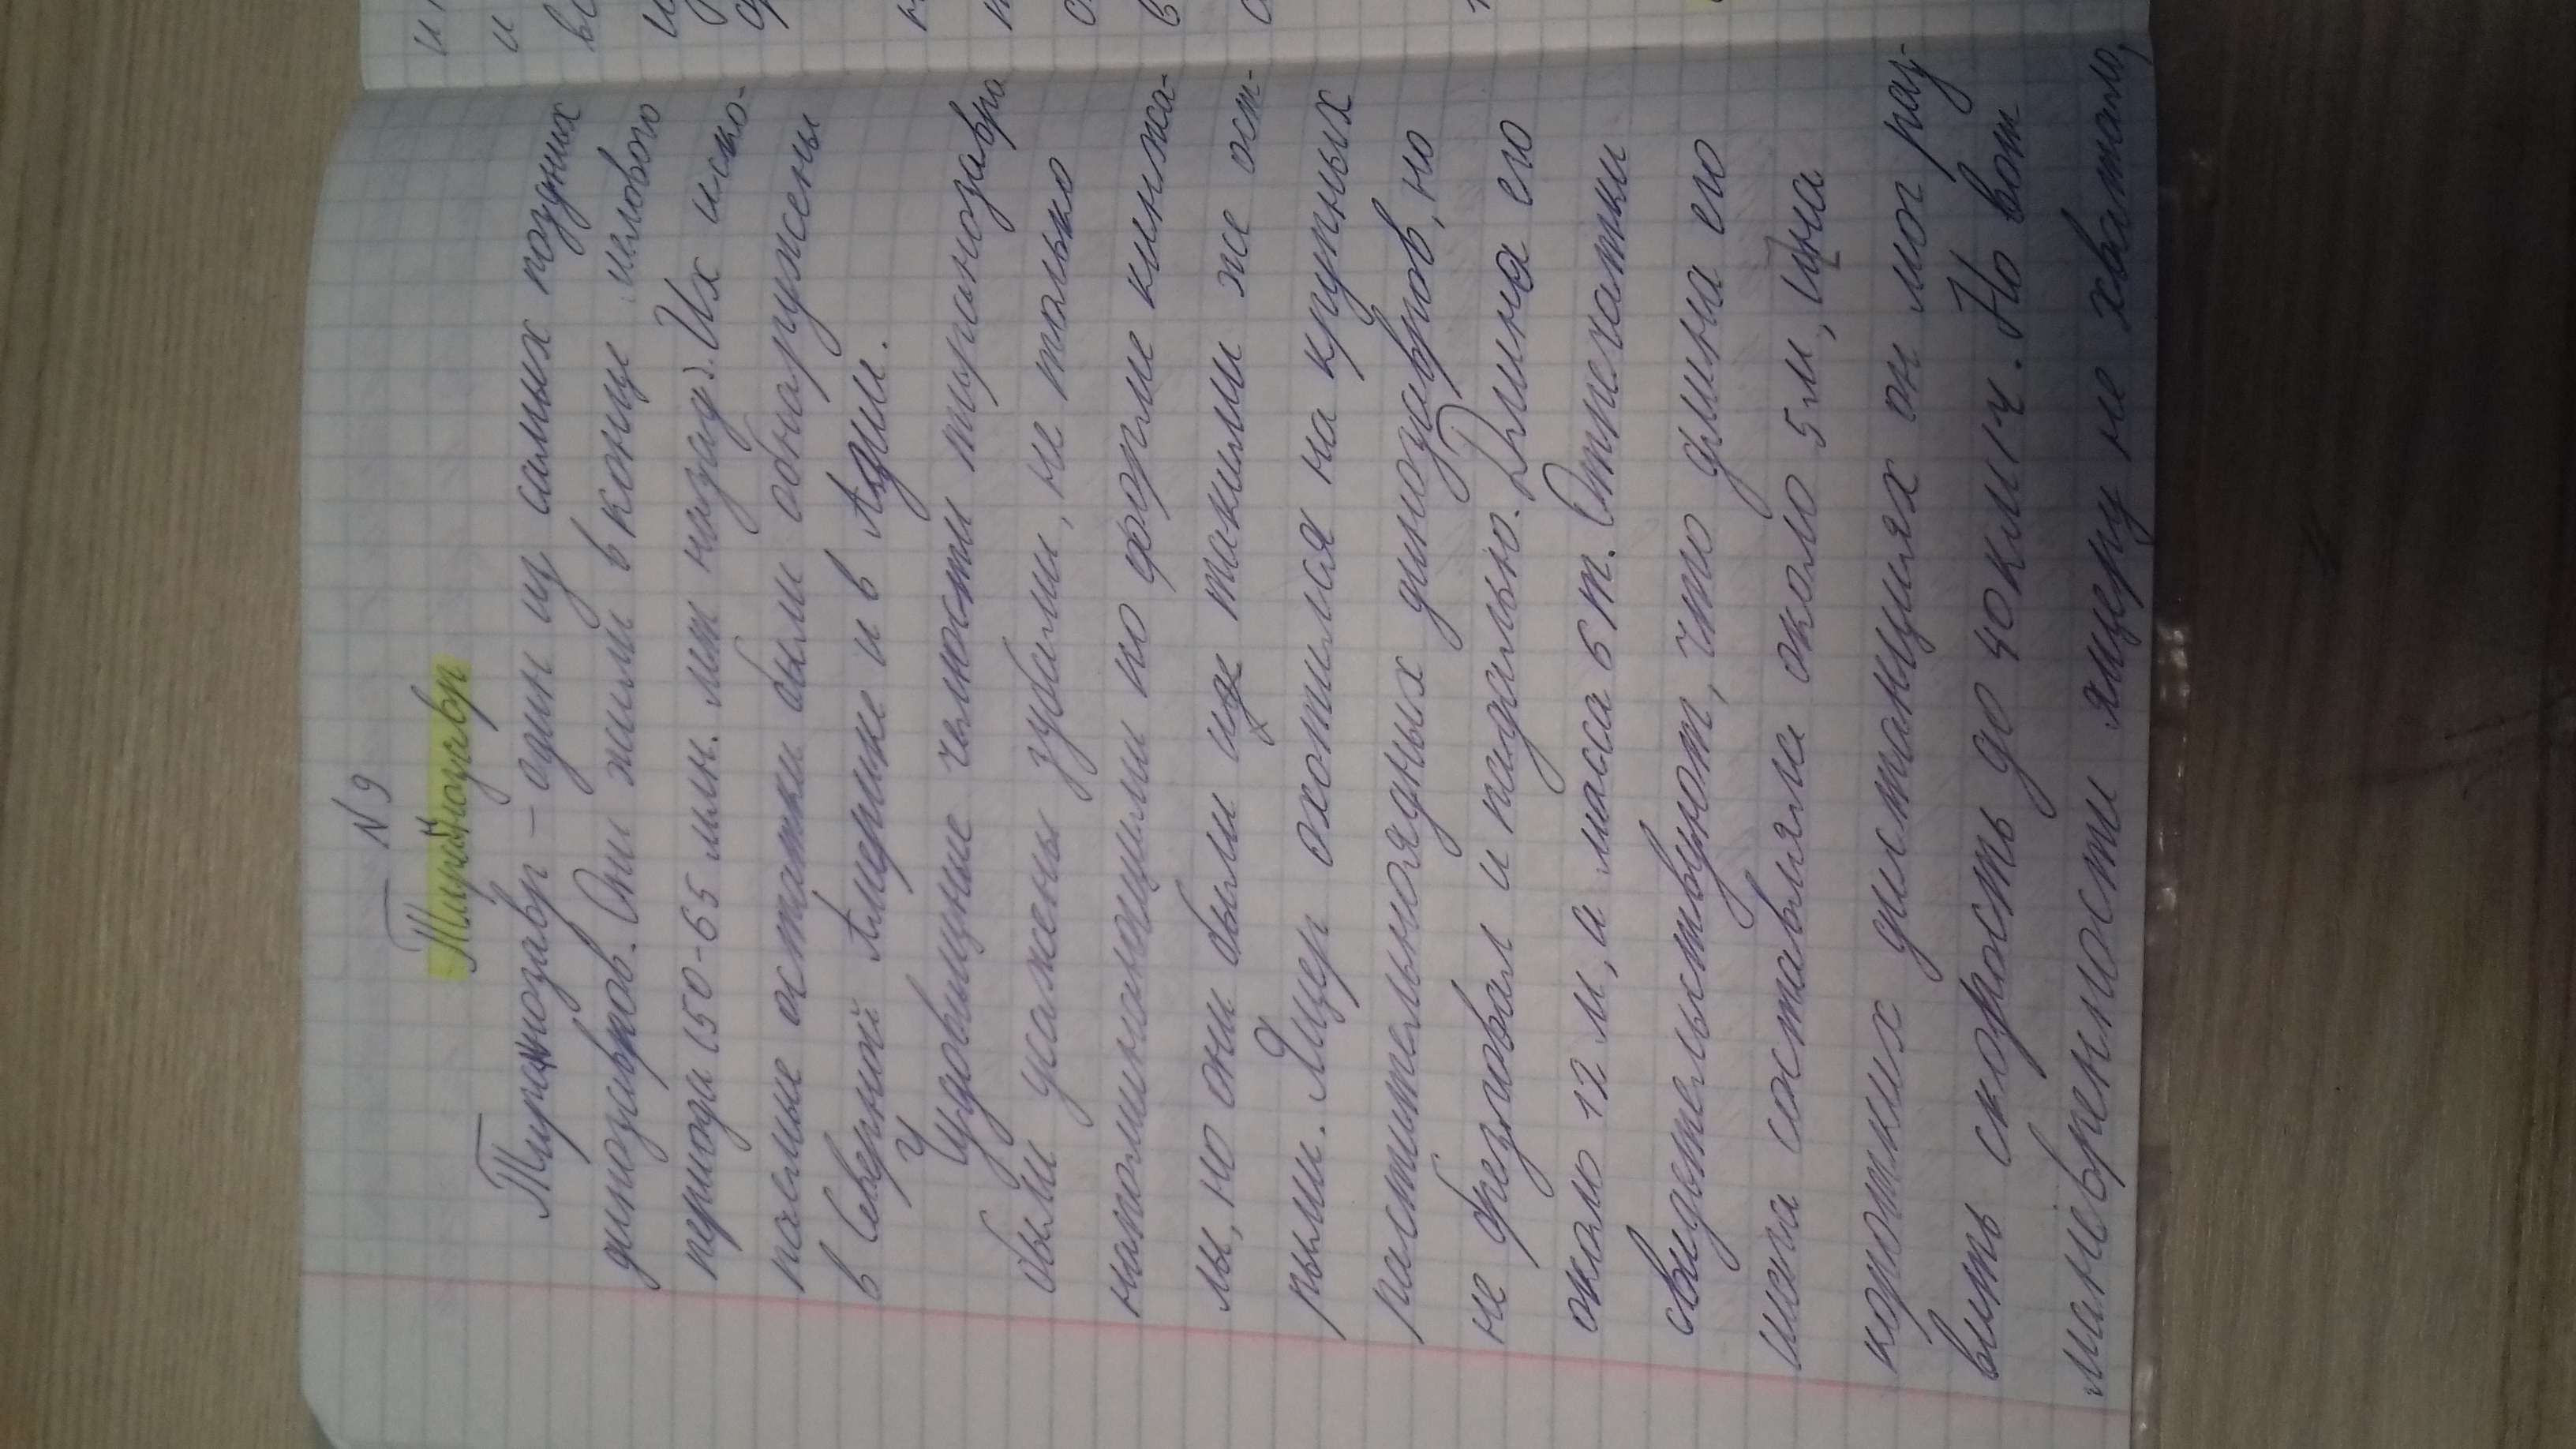 N 9
Тиранозавр
Тиранозавр – один из самых поздних
динозавров. Они жили в конце мелового
периода (50-65 млн. лет назад). Их иско-
паемые остатки были обнаружены
в Северной Америке и в Азии.
Чудовищные челюсти тиранозавра
были усажены зубами, не только
напоминающими по форме кинжа-
лы, но они были такими же ост-
рыми. Ящер охотился на крупных
растительноядных динозавров, но
не брезговал и падалью. Длина его
около 12 м, а масса 6 т. Отпечатки
свидетельствуют, что длина его
шага составляла около 5 м, и на
коротких дистанциях он мог раз-
вить скорость до 40 км/ч. Но вот
маневренности ящеру не хватало,